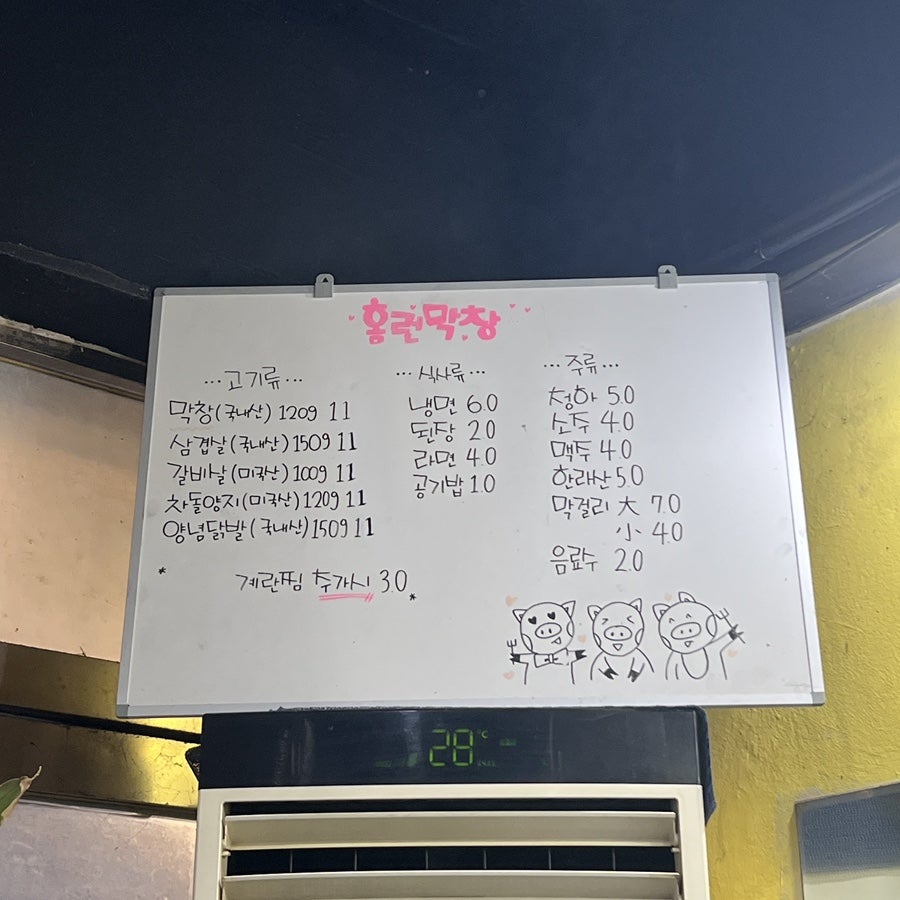 홈런막창
...고기류...
막창(국내산) 120g 11
삼겹살(국내산) 150g 11
갈비살(미국산) 100g 11
차돌양지(미국산) 120g 11
양념닭발(국내산) 150g 11
* 계란찜 추가시 3.0 *
...식사류...
냉면 6.0
된장 2.0
라면 4.0
공기밥 1.0
...주류...
청하 5.0
소주 4.0
맥주 4.0
한라산 5.0
막걸리 大 7.0
小 4.0
음료수 2.0
28°C